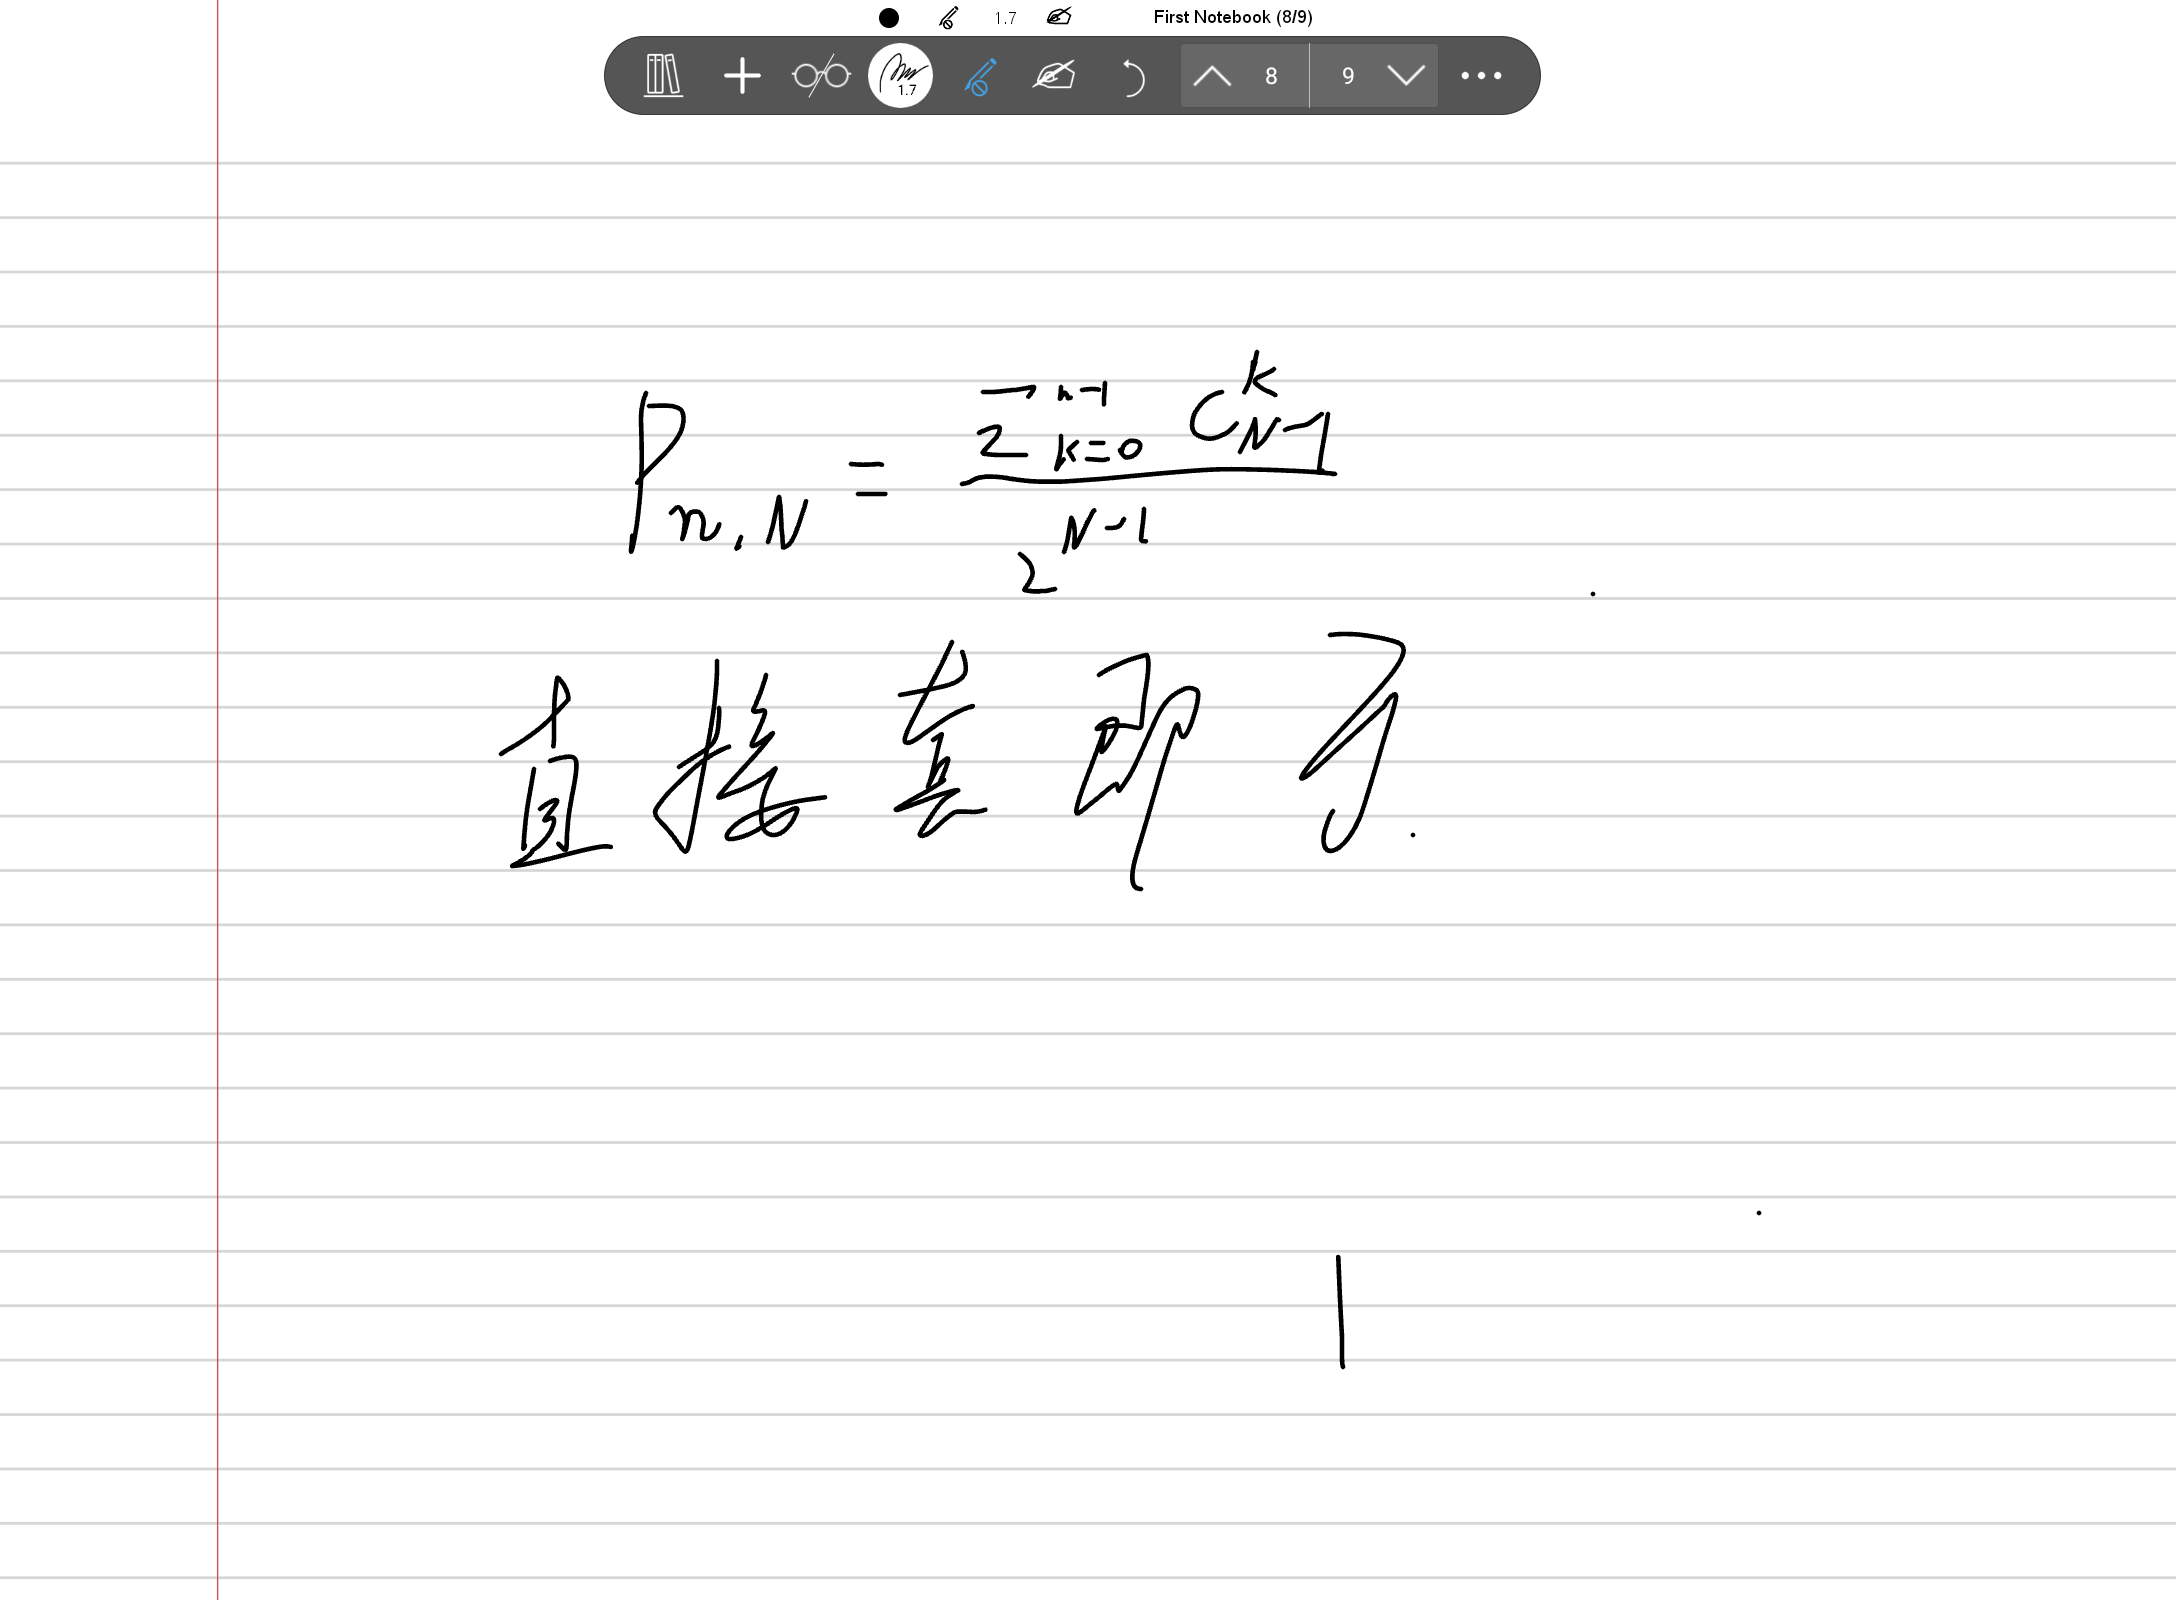 1.7 First Notebook (8/9)
1.7 8 9
P_{n,N} = \frac{\sum_{k=0}^{n-1} C_{N-1}^{k}}{2^{N-1}}
直接套即可.